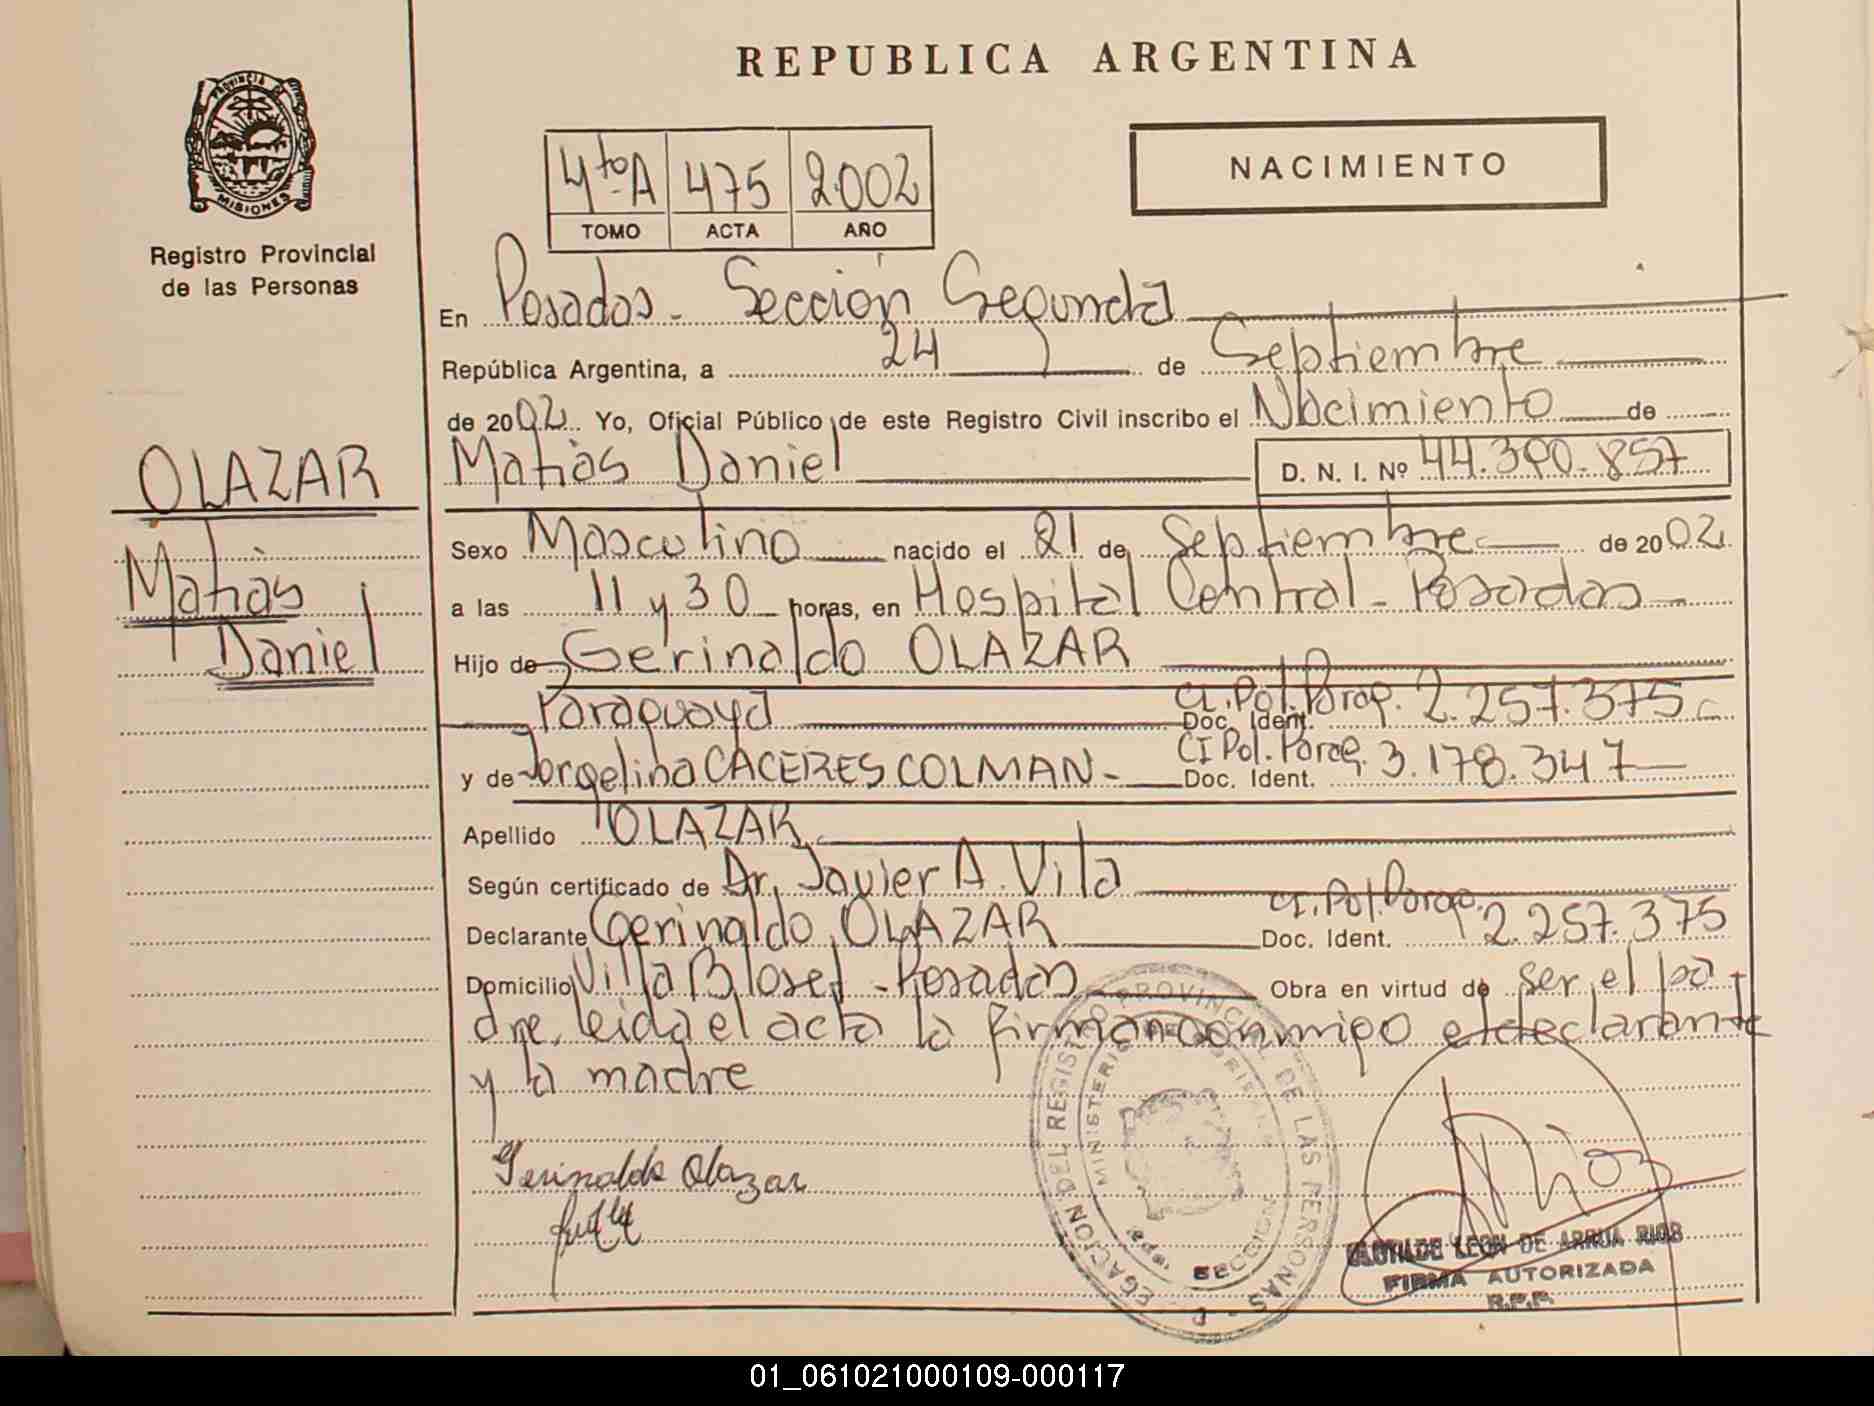 REPUBLICA ARGENTINA
PROVINCIA DE
MISIONES
Registro Provincial
de las Personas
4to A 475 2002
TOMO ACTA AÑO
NACIMIENTO
En Posadas - Sección Segunda
República Argentina, a 24 de Septiembre
de 2002 Yo, Oficial Público de este Registro Civil inscribo el Nacimiento de
Matias Daniel D. N. I. Nº 44.390.857
OLAZAR
Matias
Daniel
Sexo Masculino nacido el 21 de Septiembre de 2002
a las 11 y 30 horas, en Hospital Central - Posadas -
Hijo de Gerinaldo OLAZAR
Paraguaya CI. Pol. Parag. Doc. Ident. 2.257.375
y de Jorgelina CACERES COLMAN - CI Pol. Parag. Doc. Ident. 3.178.347
Apellido OLAZAR
Según certificado de Dr. Javier A. Vila
Declarante Gerinaldo OLAZAR CI. Pol. Parag. Doc. Ident. 2.257.375
Domicilio Villa Blosed - Posadas Obra en virtud de ser el pa-
dre, leida el acta la firman conmigo el declarante
y la madre
Gerinaldo Olazar
DELEGACION DEL REGISTRO PROVINCIAL DE LAS PERSONAS
MINISTERIO DE
SECCION
CLOTILDE LEON DE ARRUA RIOS
FIRMA AUTORIZADA
R.P.P.
01_061021000109-000117